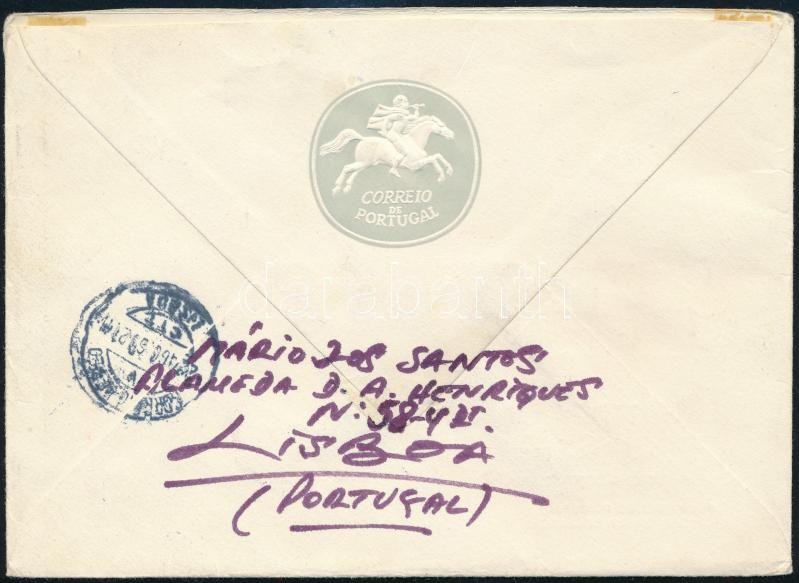 CORREIO
DE
PORTUGAL
darabanth
MÁRIO DOS SANTOS
ALAMEDA D. A. HENRIQUES
N: 58-4
LISBOA
(PORTUGAL)